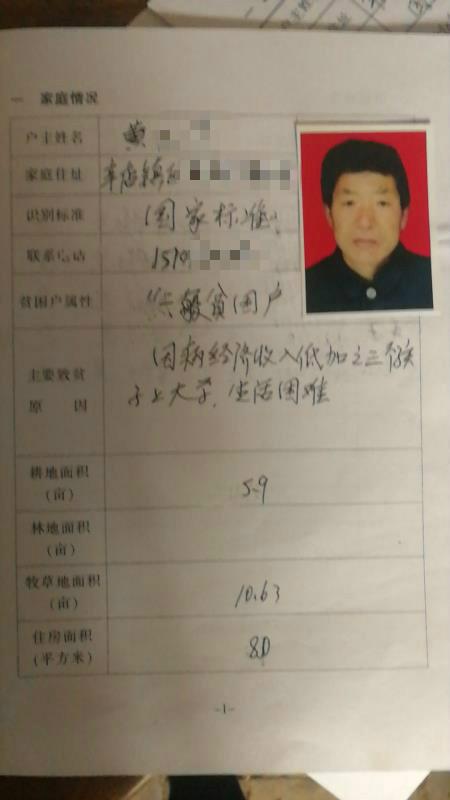 一 家庭情况
户主姓名 黄
家庭住址 车店镇
识别标准 国家标准
联系电话 1519
贫困户属性 一般贫困户
主要致贫原因 因病经济收入低加之三个孩
子上大学,生活困难
耕地面积(亩) 5.9
林地面积(亩)
牧草地面积(亩) 10.63
住房面积(平方米) 80
-1-